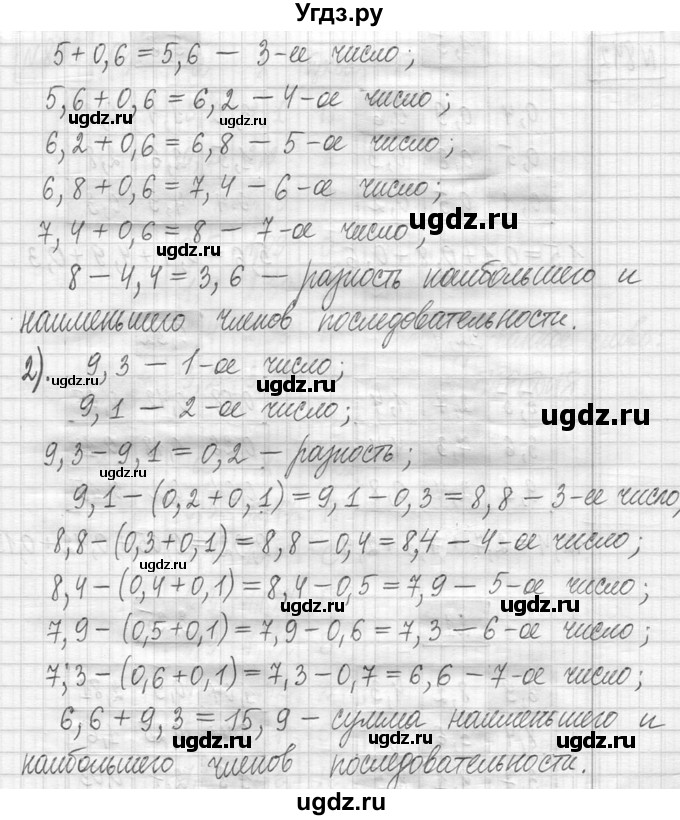 Угдз.ру
5+0,6=5,6 — 3-ее число;
5,6+0,6=6,2 — 4-ое число;
ugdz.ru ugdz.ru
6,2+0,6=6,8 — 5-ое число;
6,8+0,6=7,4 — 6-ое число;
ugdz.ru
7,4+0,6=8 — 7-ое число;
ugdz.ru
8-4,4=3,6 — разность наибольшего и
наименьшего членов последовательности.
2). 9,3 — 1-ое число;
ugdz.ru ugdz.ru
9,1 — 2-ое число;
ugdz.ru
9,3-9,1=0,2 — разность;
ugdz.ru
9,1-(0,2+0,1)=9,1-0,3=8,8 — 3-ее число,
8,8-(0,3+0,1)=8,8-0,4=8,4 — 4-ое число;
ugdz.ru
8,4-(0,4+0,1)=8,4-0,5=7,9 — 5-ое число;
ugdz.ru ugdz.ru
7,9-(0,5+0,1)=7,9-0,6=7,3 — 6-ое число;
7,3-(0,6+0,1)=7,3-0,7=6,6 — 7-ое число;
6,6+9,3=15,9 — сумма наименьшего и
ugdz.ru ugdz.ru ugdz.ru
наибольшего членов последовательности.
ugdz.ru